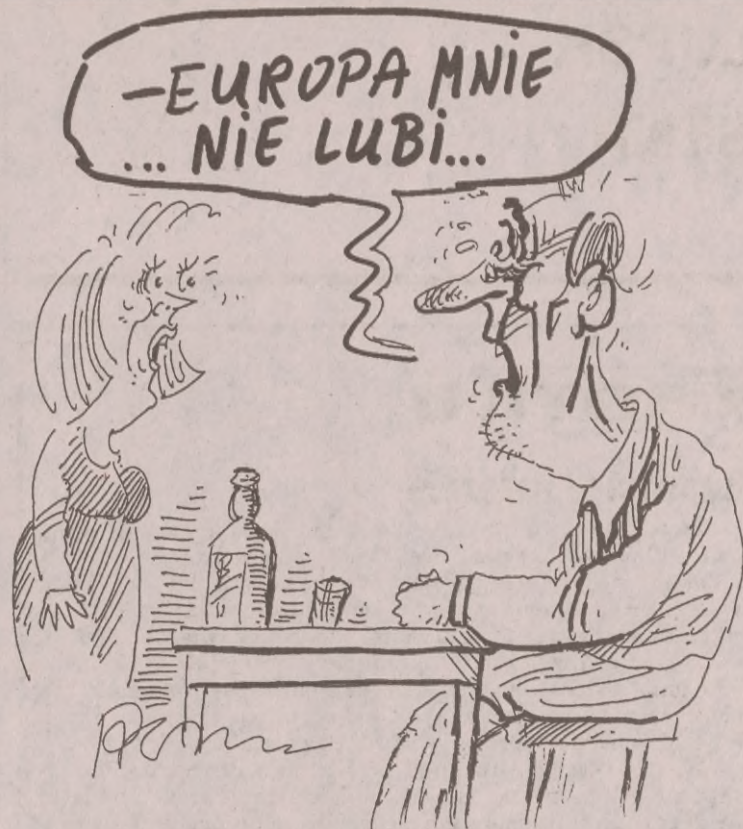 –EUROPA MNiE
... NiE LUBi...